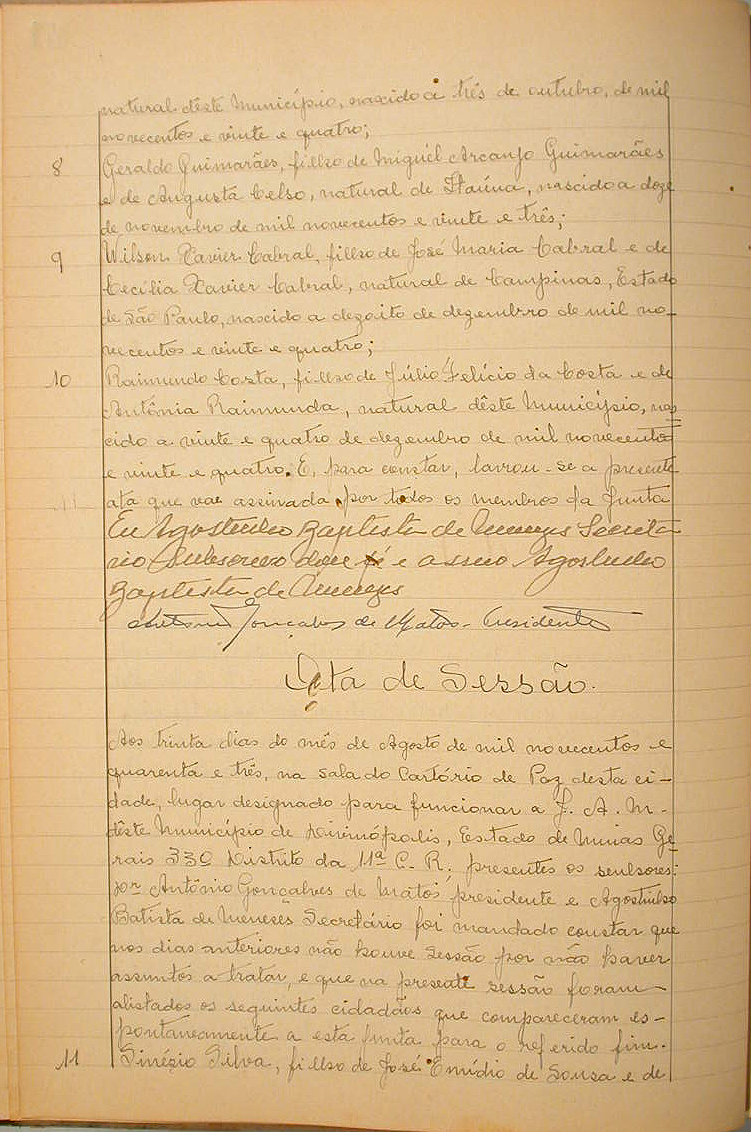 natural dêste Município, nascido a três de outubro, de mil
novecentos e vinte e quatro;
8 Geraldo Guimarães, filho de Miguel Arcanjo Guimarães
e de Augusta Celso, natural de Itaúna, nascido a doze
de novembro de mil novecentos e vinte e três;
9 Wilson Xavier Cabral, filho de José Maria Cabral e de
Cecília Xavier Cabral, natural de Campinas, Estado
de São Paulo, nascido a dezoito de dezembro de mil no-
vecentos e vinte e quatro;
10 Raimundo Costa, filho de Júlio Felício da Costa e de
Antônia Raimunda, natural dêste Município, nas
cido a vinte e quatro de dezembro de mil novecentos
e vinte e quatro. E, para constar, lavrou-se a presente
ata que vae assinada por todos os membros da Junta
Eu Agostinho Baptista de Menezes Secreta
rio Subscrevo dou fé e assino Agostinho
Baptista de Menezes
Antonio Gonçalves de Matos - Presidente
Ata de Sessão.
Aos trinta dias do mês de Agosto de mil novecentos e
quarenta e três, na sala do Cartório de Paz desta ci-
dade, lugar designado para funcionar a J. A. M-
dêste Município de Divinópolis, Estado de Minas Ge-
rais 33º Distrito da 11ª C. R; presentes os senhores:
Antônio Gonçalves de Matos presidente e Agostinho
Batista de Meneses Secretário foi mandado constar que
nos dias anteriores não houve sessão por não haver
assuntos a tratar, e que na presente sessão foram
alistados os seguintes cidadãos que compareceram es-
pontaneamente a esta junta para o referido fim.
11 Sinézio Silva, filho de José Emídio de Sousa e de